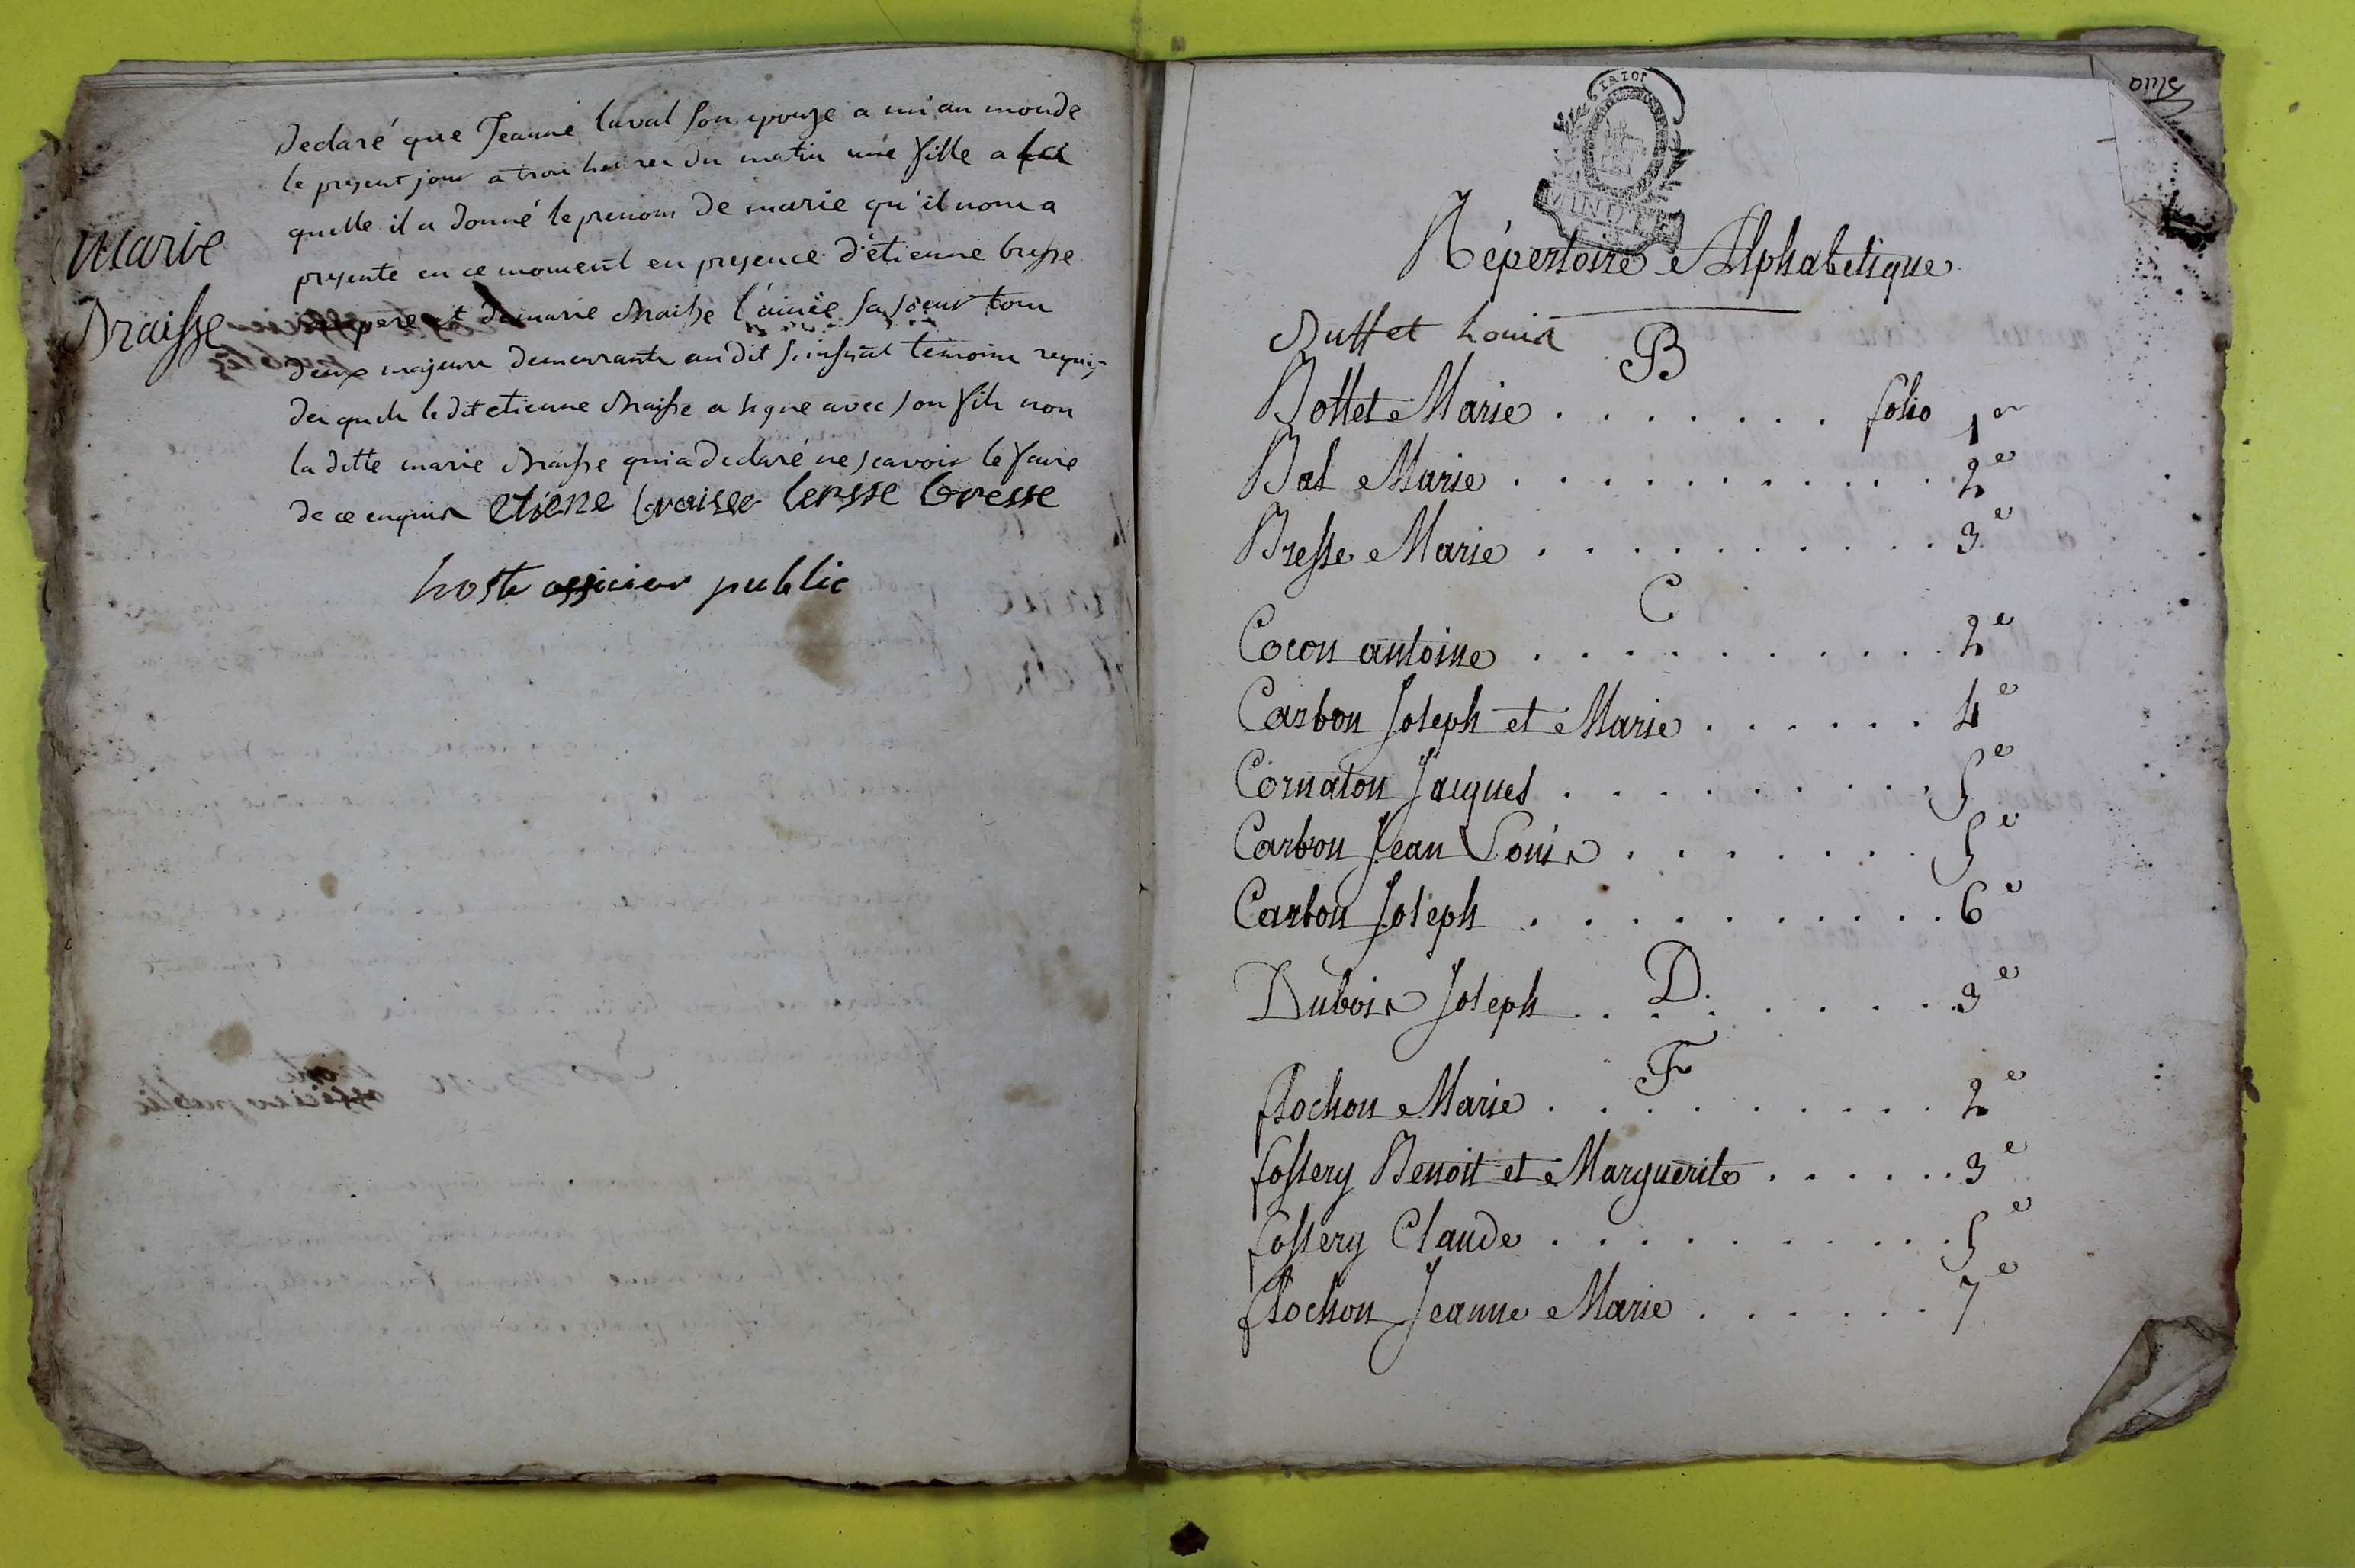 Declaré que Jeanne laval son epouze a mi au monde
le present jour a troi heures du matin une fille a
quelle il a donné le prenom de marie qu'il nou a
presente en ce moment en presence d'étienne bresse
Marie
pere et de marie Braisse l'ainée sa soeur tou
Braisse
deux majeurs demeurants au dit temoins requis
des quels le dit etienne Braisse a signe avec son fils non
la ditte marie Braisse qui a declaré ne scavoir le faire
de ce enquis etiene braisse bresse
hoste officier public
Répertoire Alphabetique
Buffet Louis
B
Bottet Marie . . . . . . . folio 1er
Bal Marie . . . . . . . . . . . 2e
Bresse Marie . . . . . . . . . . 3e
C
Cocon antoine . . . . . . . . . . 2e
Carbon Joseph et Marie . . . . . . 4e
Cornaton Jacques . . . . . . . . . 5e
Carbon Jean Louis . . . . . . . 5e
Carbon Joseph . . . . . . . . . . 6e
D
Dubois Joseph . . . . . . . . 3e
F
flochon Marie . . . . . . . . . . 2e
fossery Benoit et Marguerite . . . . . . 3e
fossery Claude . . . . . . . . . . 5e
flochon Jeanne Marie . . . . . . 7e